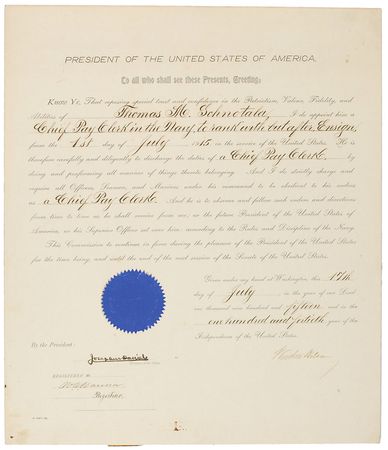 PRESIDENT OF THE UNITED STATES OF AMERICA.
To all who shall see these Presents, Greeting:
Know Ye, That reposing special trust and confidence in the Patriotism, Valour, Fidelity, and
Abilities of Thomas M. Schnotala, I do appoint him a
Chief Pay Clerk in the Navy, to rank with but after Ensign,
from the 1st day of July 1915 in the service of the United States. He is
therefore carefully and diligently to discharge the duties of a Chief Pay Clerk by
doing and performing all manner of things thereto belonging. And I do strictly charge and
require all Officers, Seamen, and Marines under his command to be obedient to his orders
as a Chief Pay Clerk. And he is to observe and follow such orders and directions
from time to time as he shall receive from me, or the future President of the United States of
America, or his Superior Officer set over him, according to the Rules and Discipline of the Navy.
This Commission to continue in force during the pleasure of the President of the United States
for the time being, and until the end of the next session of the Senate of the United States.
Given under my hand at Washington, this 17th
day of July in the year of our Lord
one thousand nine hundred and fifteen and in the
one hundred and fortieth year of the
Independence of the United States.
By the President:
Woodrow Wilson
Josephus Daniels
REGISTERED
Registrar.